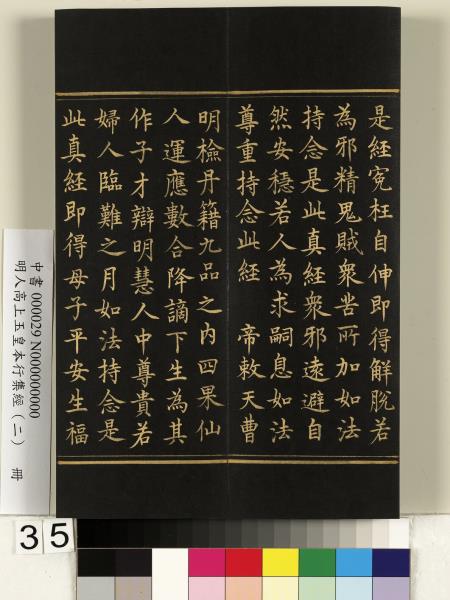 是經寃枉自伸即得解脫若
為邪精鬼賊衆苦所加如法
持念是此真經衆邪遠避自
然安穩若人為求嗣息如法
尊重持念此經　帝敕天曹
明檢丹籍九品之内四果仙
人運應數合降謫下生為其
作子才辯明慧人中尊貴若
婦人臨難之月如法持念是
此真經即得母子平安生福
中書 000029 N000000000
明人高上玉皇本行集經（二） 冊
35